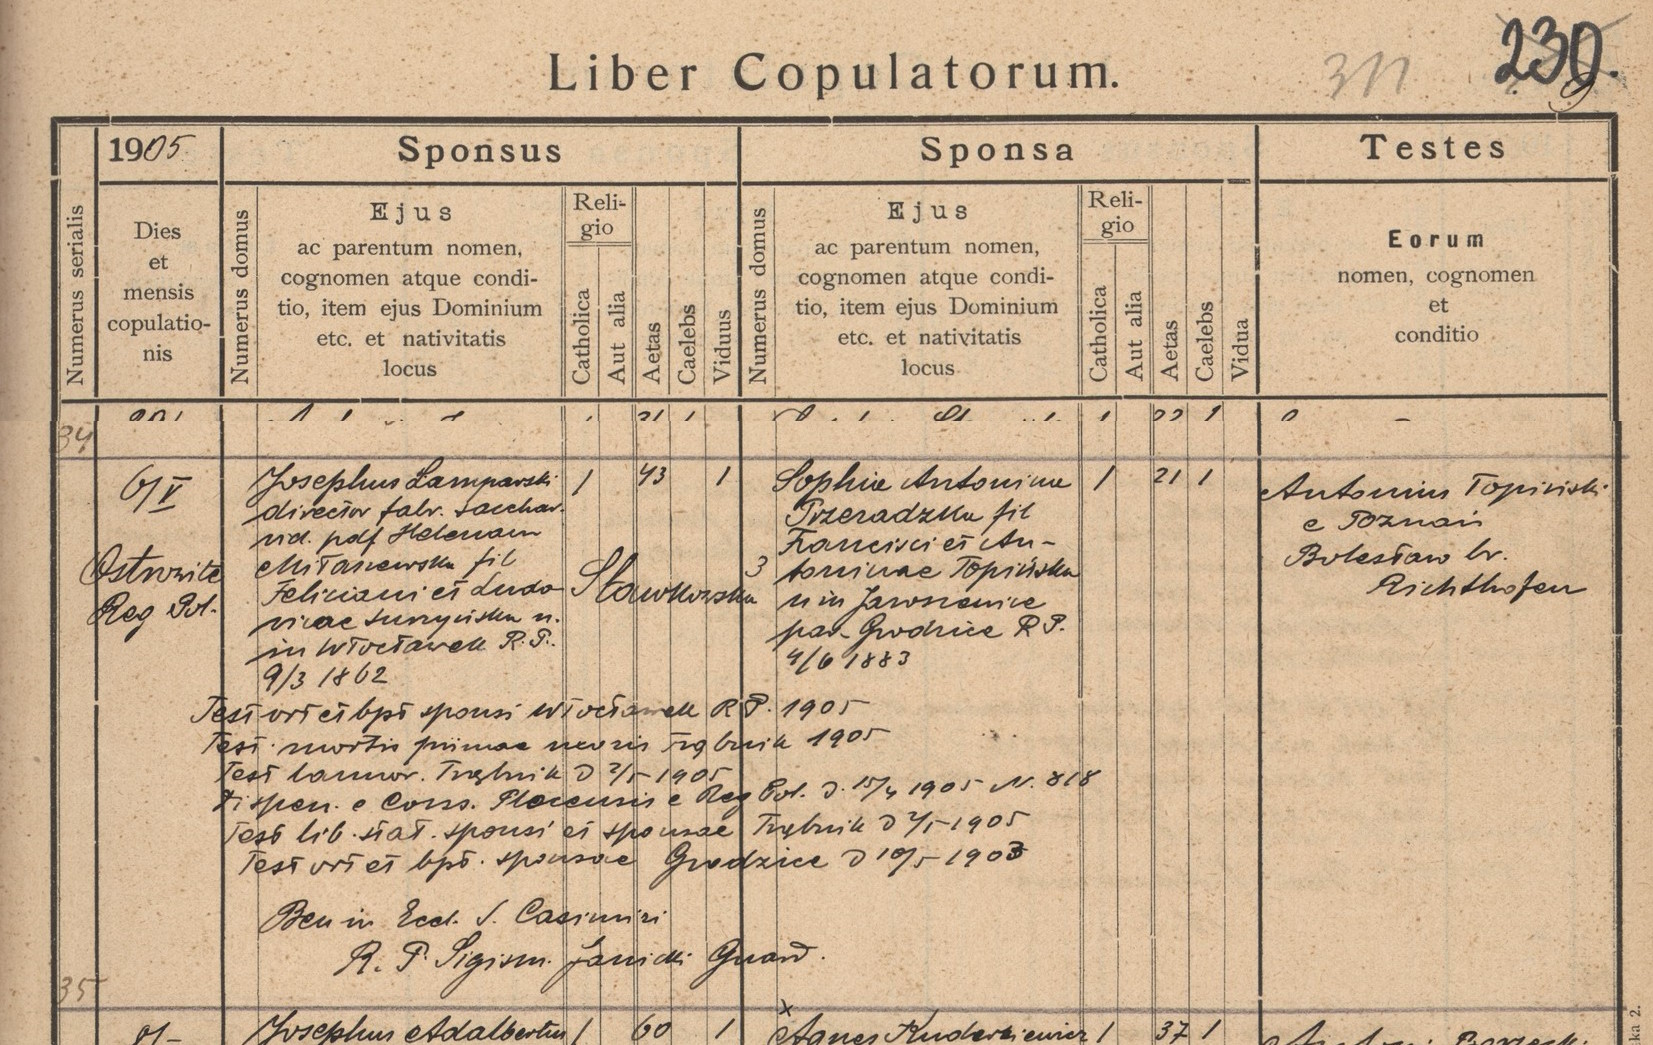 Liber Copulatorum.
311
230.
1905
Sponsus
Sponsa
Testes
Numerus serialis
Dies
et
mensis
copulatio-
nis
Numerus domus
Ejus
ac parentum nomen,
cognomen atque condi-
tio, item ejus Dominium
etc. et nativitatis
locus
Reli-
gio
Catholica
Aut alia
Aetas
Caelebs
Viduus
Numerus domus
Ejus
ac parentum nomen,
cognomen atque condi-
tio, item ejus Dominium
etc. et nativitatis
locus
Reli-
gio
Catholica
Aut alia
Aetas
Caelebs
Vidua
Eorum
nomen, cognomen
et
conditio
34
6/V
Ostrowite
Reg Pol.
Josephus Lamparski
director fabr. sacchar.
vid. Helenam
Milanewska fil
Feliciani et Ludo-
vicae n.
in Włocławek R.P.
9/3 1862
1 43 1
Sławkowska 3
Sophia Antonina
Przeradzka fil
Francisci et An-
toninae Topińska
n in Jaroszewice
par. Grodziec R P.
4/6 1883
1 21 1
Antonius Topiński
e Poznań
Bolesław br.
Richthofen
Test ort et bpt sponsi Włocławek R P. 1905
Test. mortis primae uxoris 1905
Test bannor. D 2/5 1905
Dispen. e Cons. Plocensis e Reg Pol. D. 15/4 1905 N. 818
Test lib. stat. sponsi et sponsae D 2/5 1905
Test ort et bpt. sponsae Grodziec D 10/5 1903
Ben in Eccl. S. Casimiri
R. P. Sigism. Janicki Guard.
35
Josephus Adalbertus 1 60 1
x
Agnes Kuderkiewicz 1 37 1
ka 2.